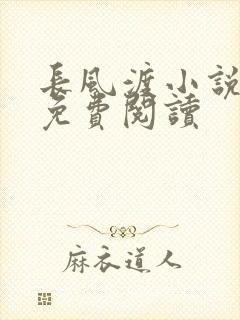 長風渡小說
免費閱讀
麻衣道人